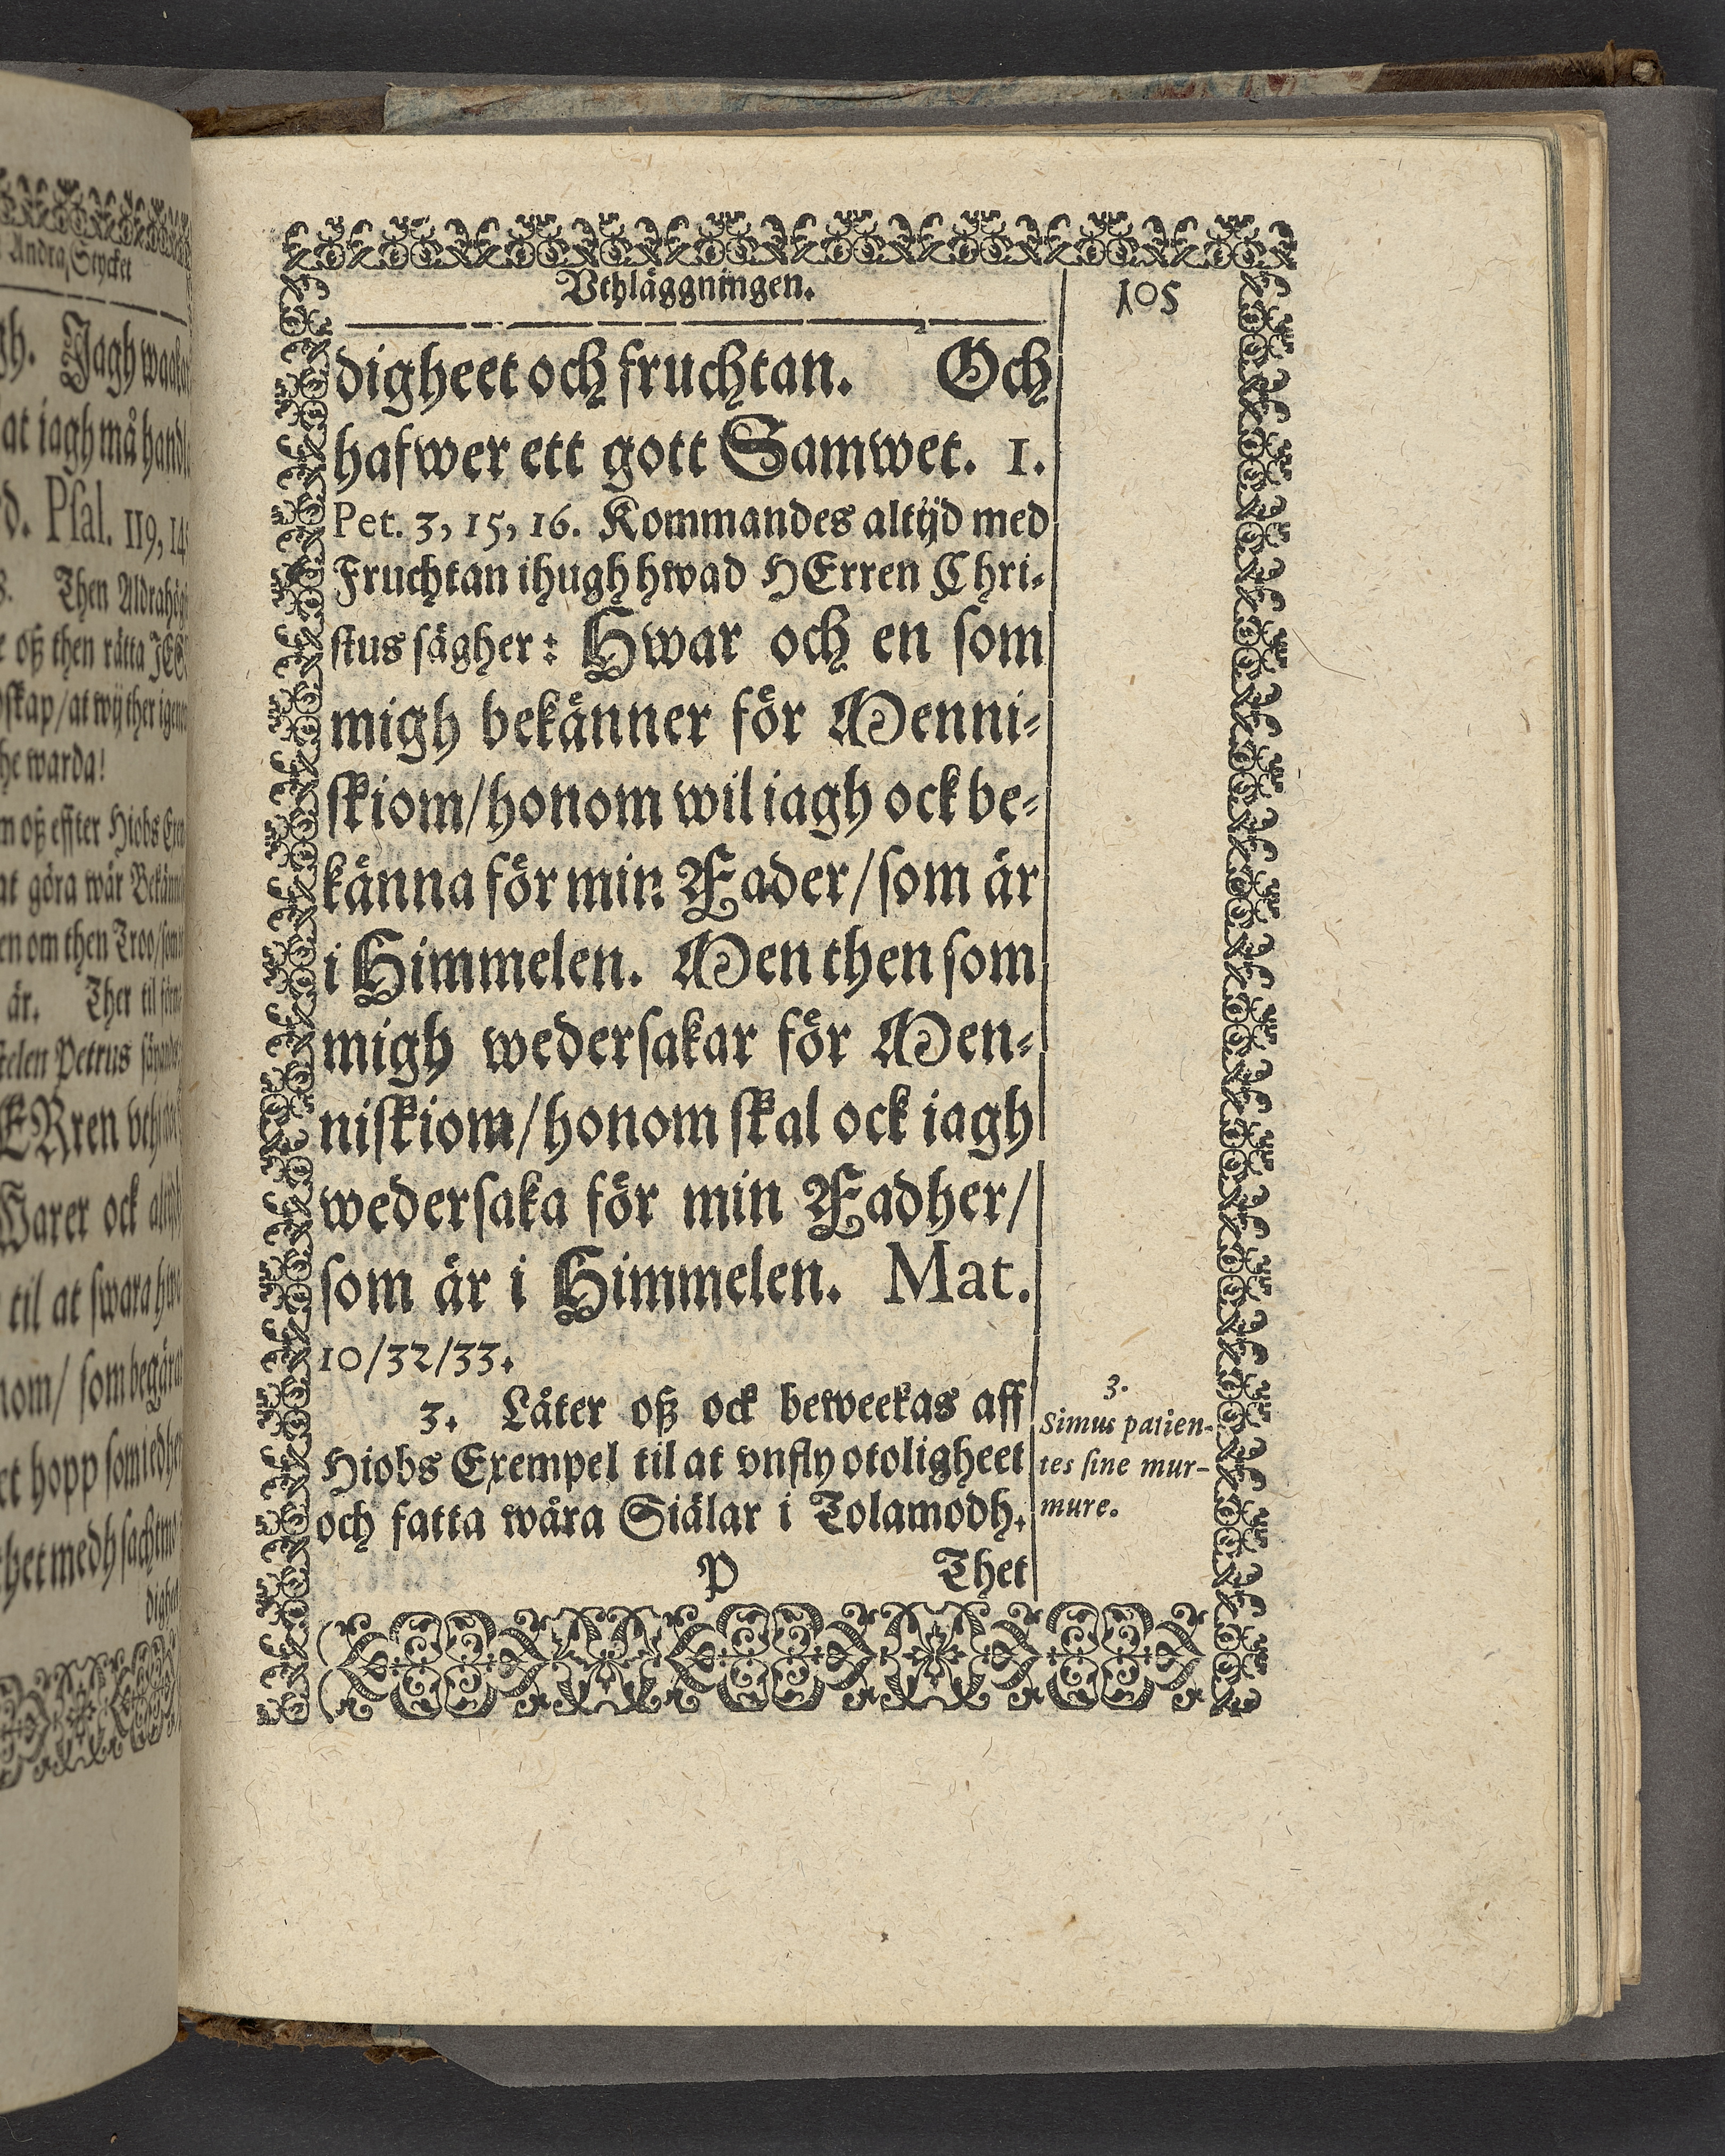 Andra Stycket
Jagh
at iagh må
Psal. 119, 14
Then
oß then rätta
at wij ther
he warda!
oß effter Hiobs
at göra wår
en om then Troo/
är. Ther til
Petrus
ERren
Warer ock
til at swara
som begärar
hopp som
thet medh
Vthläggningen.
105
digheet och fruchtan. Och
hafwer ett gott Samwet. 1.
Pet. 3, 15, 16. Kommandes altijd med
Fruchtan ihugh hwad HErren Chri-
stus sägher: Hwar och en som
migh bekänner för Menni-
skiom/honom wil iagh ock be-
känna för min Fader/som är
i Himmelen. Men then som
migh wedersakar för Men-
niskiom/honom skal ock iagh
wedersaka för min Fadher/
som är i Himmelen. Mat.
10/32/33.
3. Låter oß ock beweekas aff
Hiobs Exempel til at vnfly otoligheet
och fatta wåra Siälar i Tolamodh.
P Thet
3.
Simus patien-
tes sine mur-
mure.